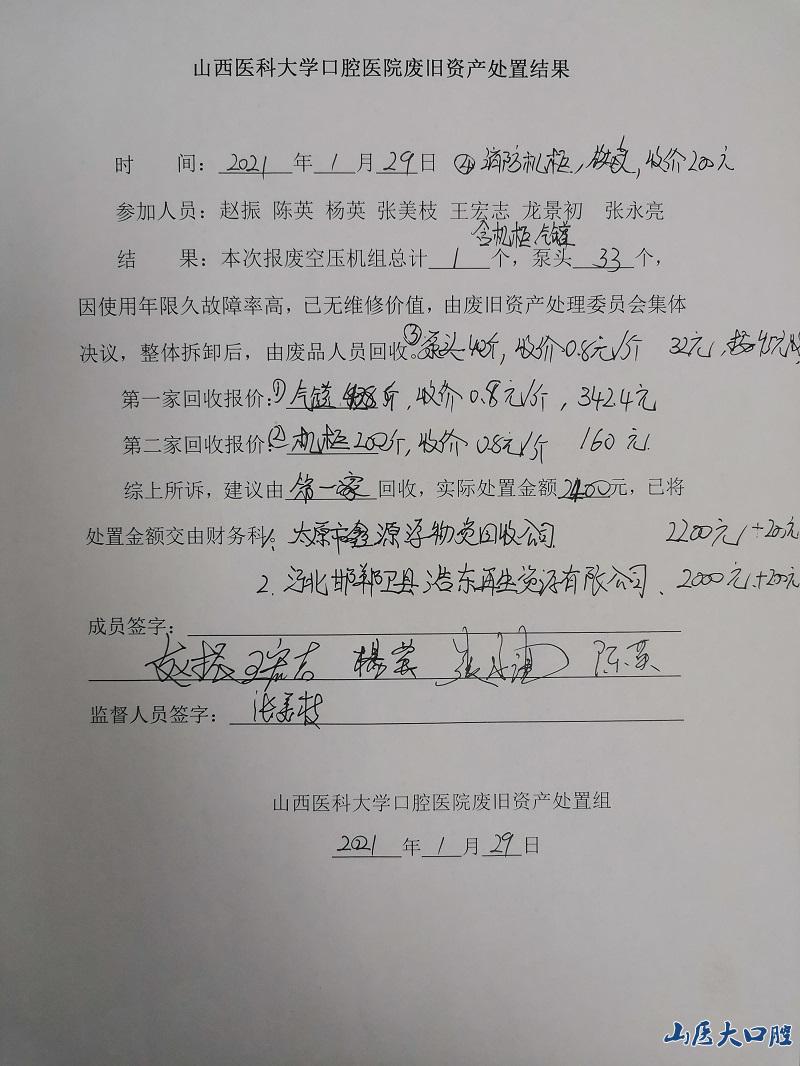 山西医科大学口腔医院废旧资产处置结果
时 间：2021年1月29日 ④消防机柜，收价200元
参加人员：赵振 陈英 杨英 张美枝 王宏志 龙景初 张永亮
含机柜气罐
结 果：本次报废空压机组总计1个，泵头33个，
因使用年限久故障率高，已无维修价值，由废旧资产处理委员会集体
决议，整体拆卸后，由废品人员回收。③泵头40斤，收价0.8元/斤 32元，
第一家回收报价：①气罐 斤，收价0.8元/斤，342.4元
第二家回收报价：②机柜200斤，收价0.8元/斤 160元.
综上所诉，建议由第一家回收，实际处置金额2400元，已将
处置金额交由财务科。1、太原市鑫源浮物资回收公司 2200元+200元
2、河北邯郸卫县浩东再生资源有限公司、2000元+200元
成员签字：
赵振 王宏志 杨英 张永亮 陈英
监督人员签字：张美枝
山西医科大学口腔医院废旧资产处置组
2021年1月29日
山医大口腔